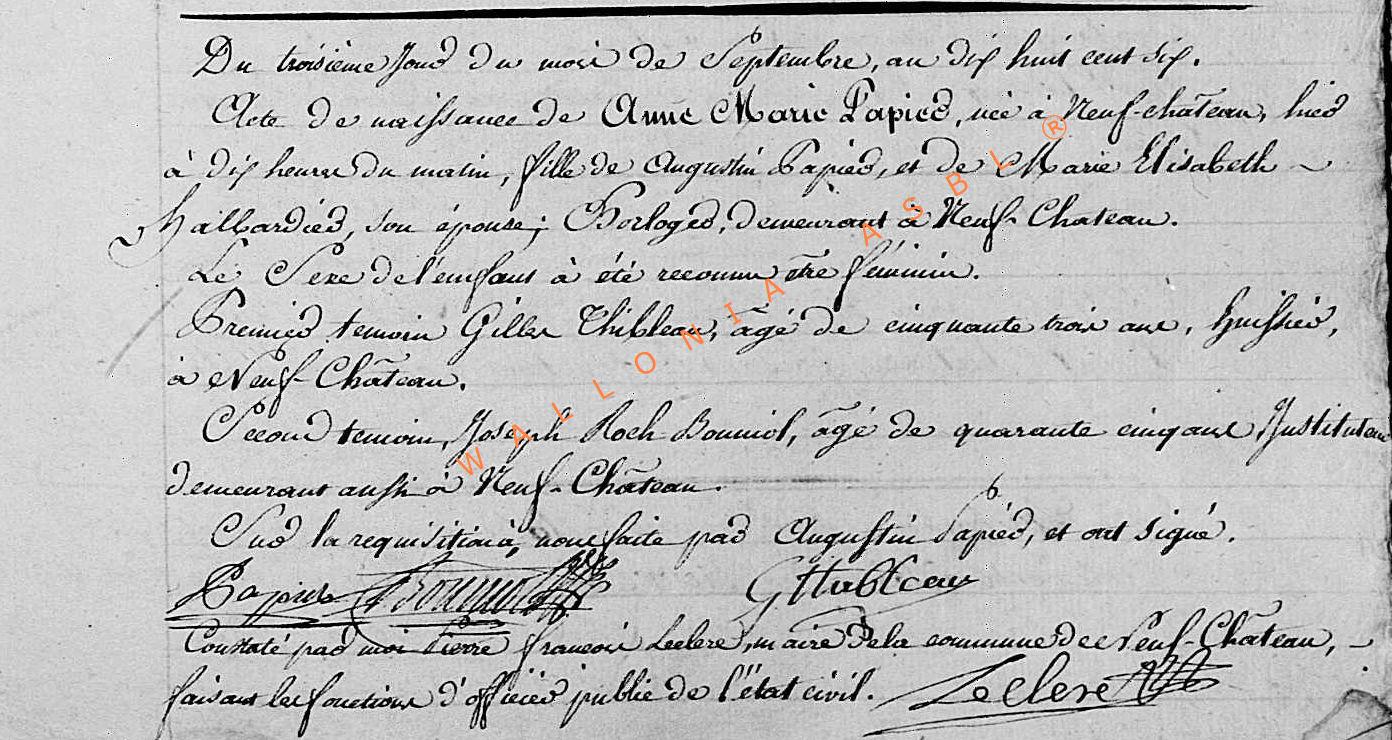 Du troisième Jour du mois de Septembre, an dix huit cent six.
Acte de naissance de Anne Marie Papier, née à Neuf-château, hier
à dix heures du matin, fille de Augustin Papier, et de Marie Elisabeth -
hallbardier, son épouse; Horloger, demeurant à Neuf-Chateau.
Le Sexe de l'enfant à été reconnu être féminin.
Premier temoin Gilles Thibleau, âgé de cinquante trois ans, huissier,
à Neuf-Château.
Second temoin, Joseph Roch Bouniol, âgé de quarante cinq ans, Instituteur
demeurant aussi à Neuf-Château.
Sur la requisition à nous faite par Augustin Papier, et ont signé.
Papier Bouniol GThibleau
Constaté par moi Pierre françois Leclere, maire de la commune de Neuf-Château, -
faisant les fonctions d'officier public de l'état civil. Leclere
WALLONIA ASBL ®